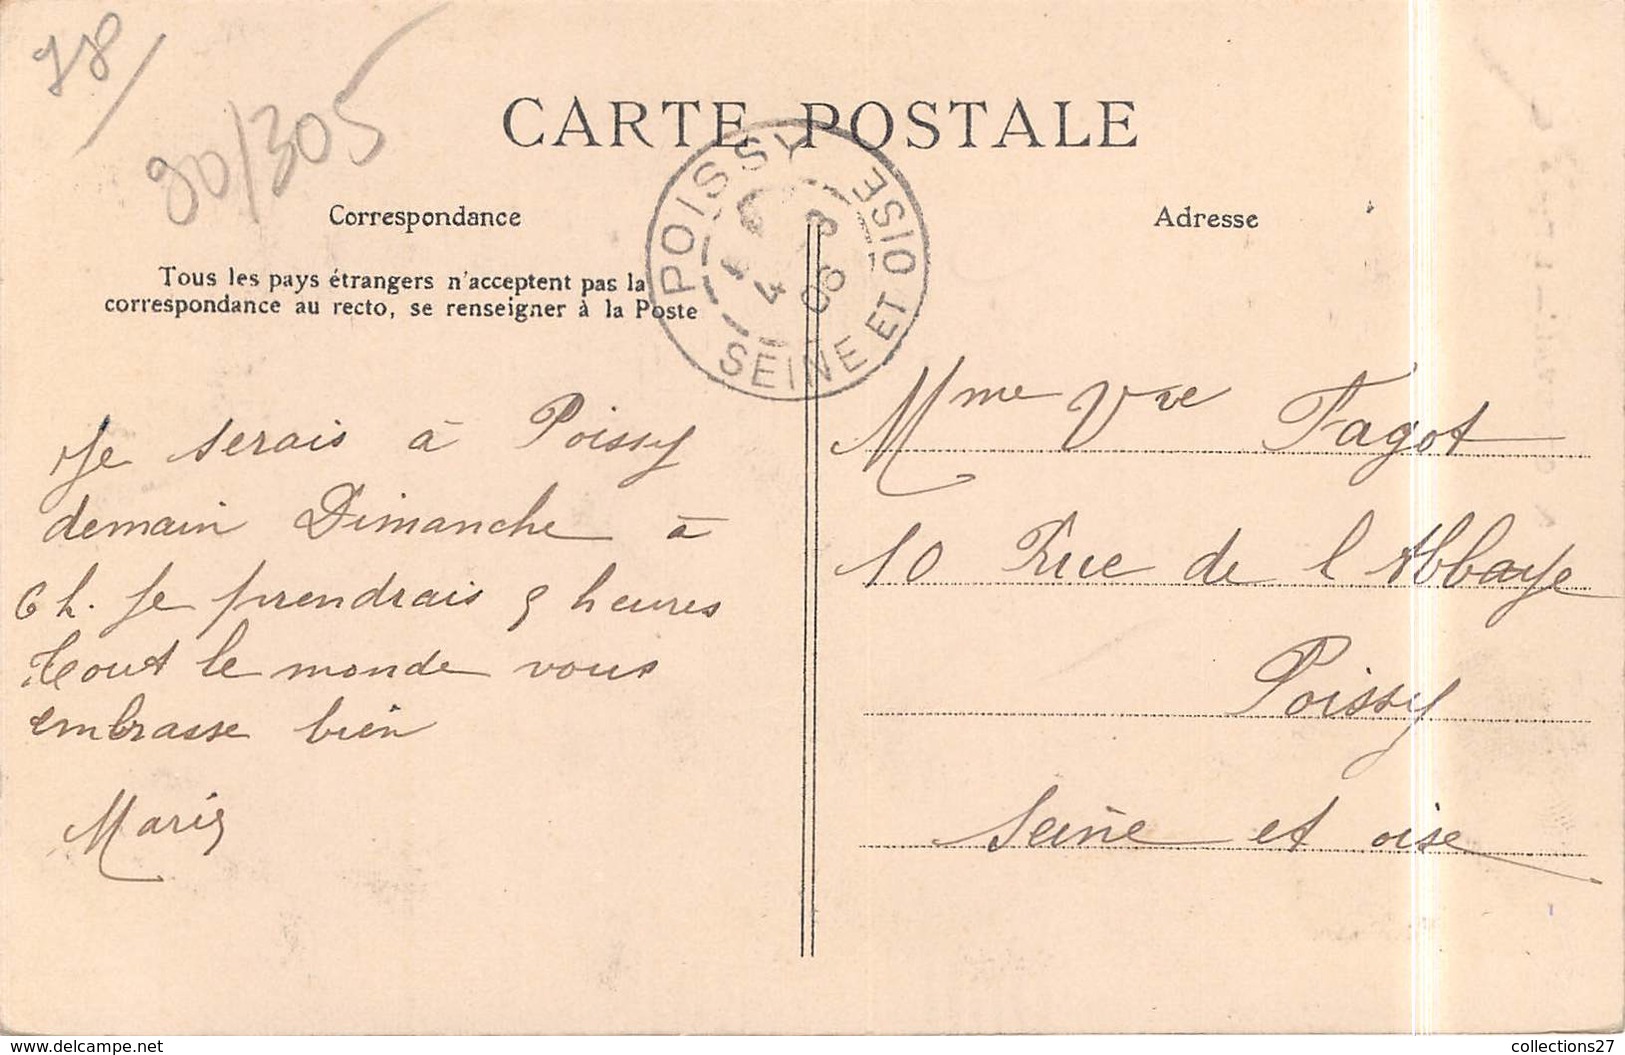 78/
90/305
CARTE POSTALE
POISSY
SEINE ET OISE
4
8
06
Correspondance
Adresse
Tous les pays étrangers n'acceptent pas la
correspondance au recto, se renseigner à la Poste
Je serais à Poissy
demain Dimanche à
6 h. Je prendrais 5 heures
tout le monde vous
embrasse bien
Marie
Mme Vve Fagot
10 Rue de l Abbaye
Poissy
Seine et oise
https://www.delcampe.net
collections27